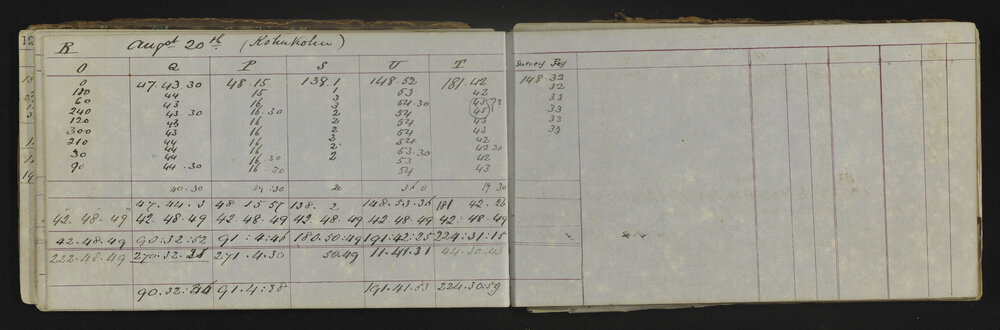 R Augst 20th (Kohukohu)
O Q P S U T Survey Peg
0 47.43.30 48.15 139.1 148.52 181.42 148.32
180 44 15 1 53 42 32
60 43 16 3 54.30 (45)? 33
240 43 30 16.30 3 54 (45) 33
120 43 16 2 54 43 33
300 43 16 2 54 43 33
210 44 16 2 54 42
30 44 16 2 53.30 42 30
90 44 16.30 2 53 42
44.30 16.30 54 43
40.30 20 19 30
47.44.3 48 15 57 138. 2 148.53.36 181 42.26
42.48.49 42.48.49 42 48.49 42 48.49 42 48.49 42:48.49
42.48.49 90:32:52 91:4:46 180.50.49 191:42:25 224:31:15
222.48.49 270.32.31 271.4.30 50.49 11.41.31 44.30.43
90.32: 91.4:38 191.41.53 224.30:59